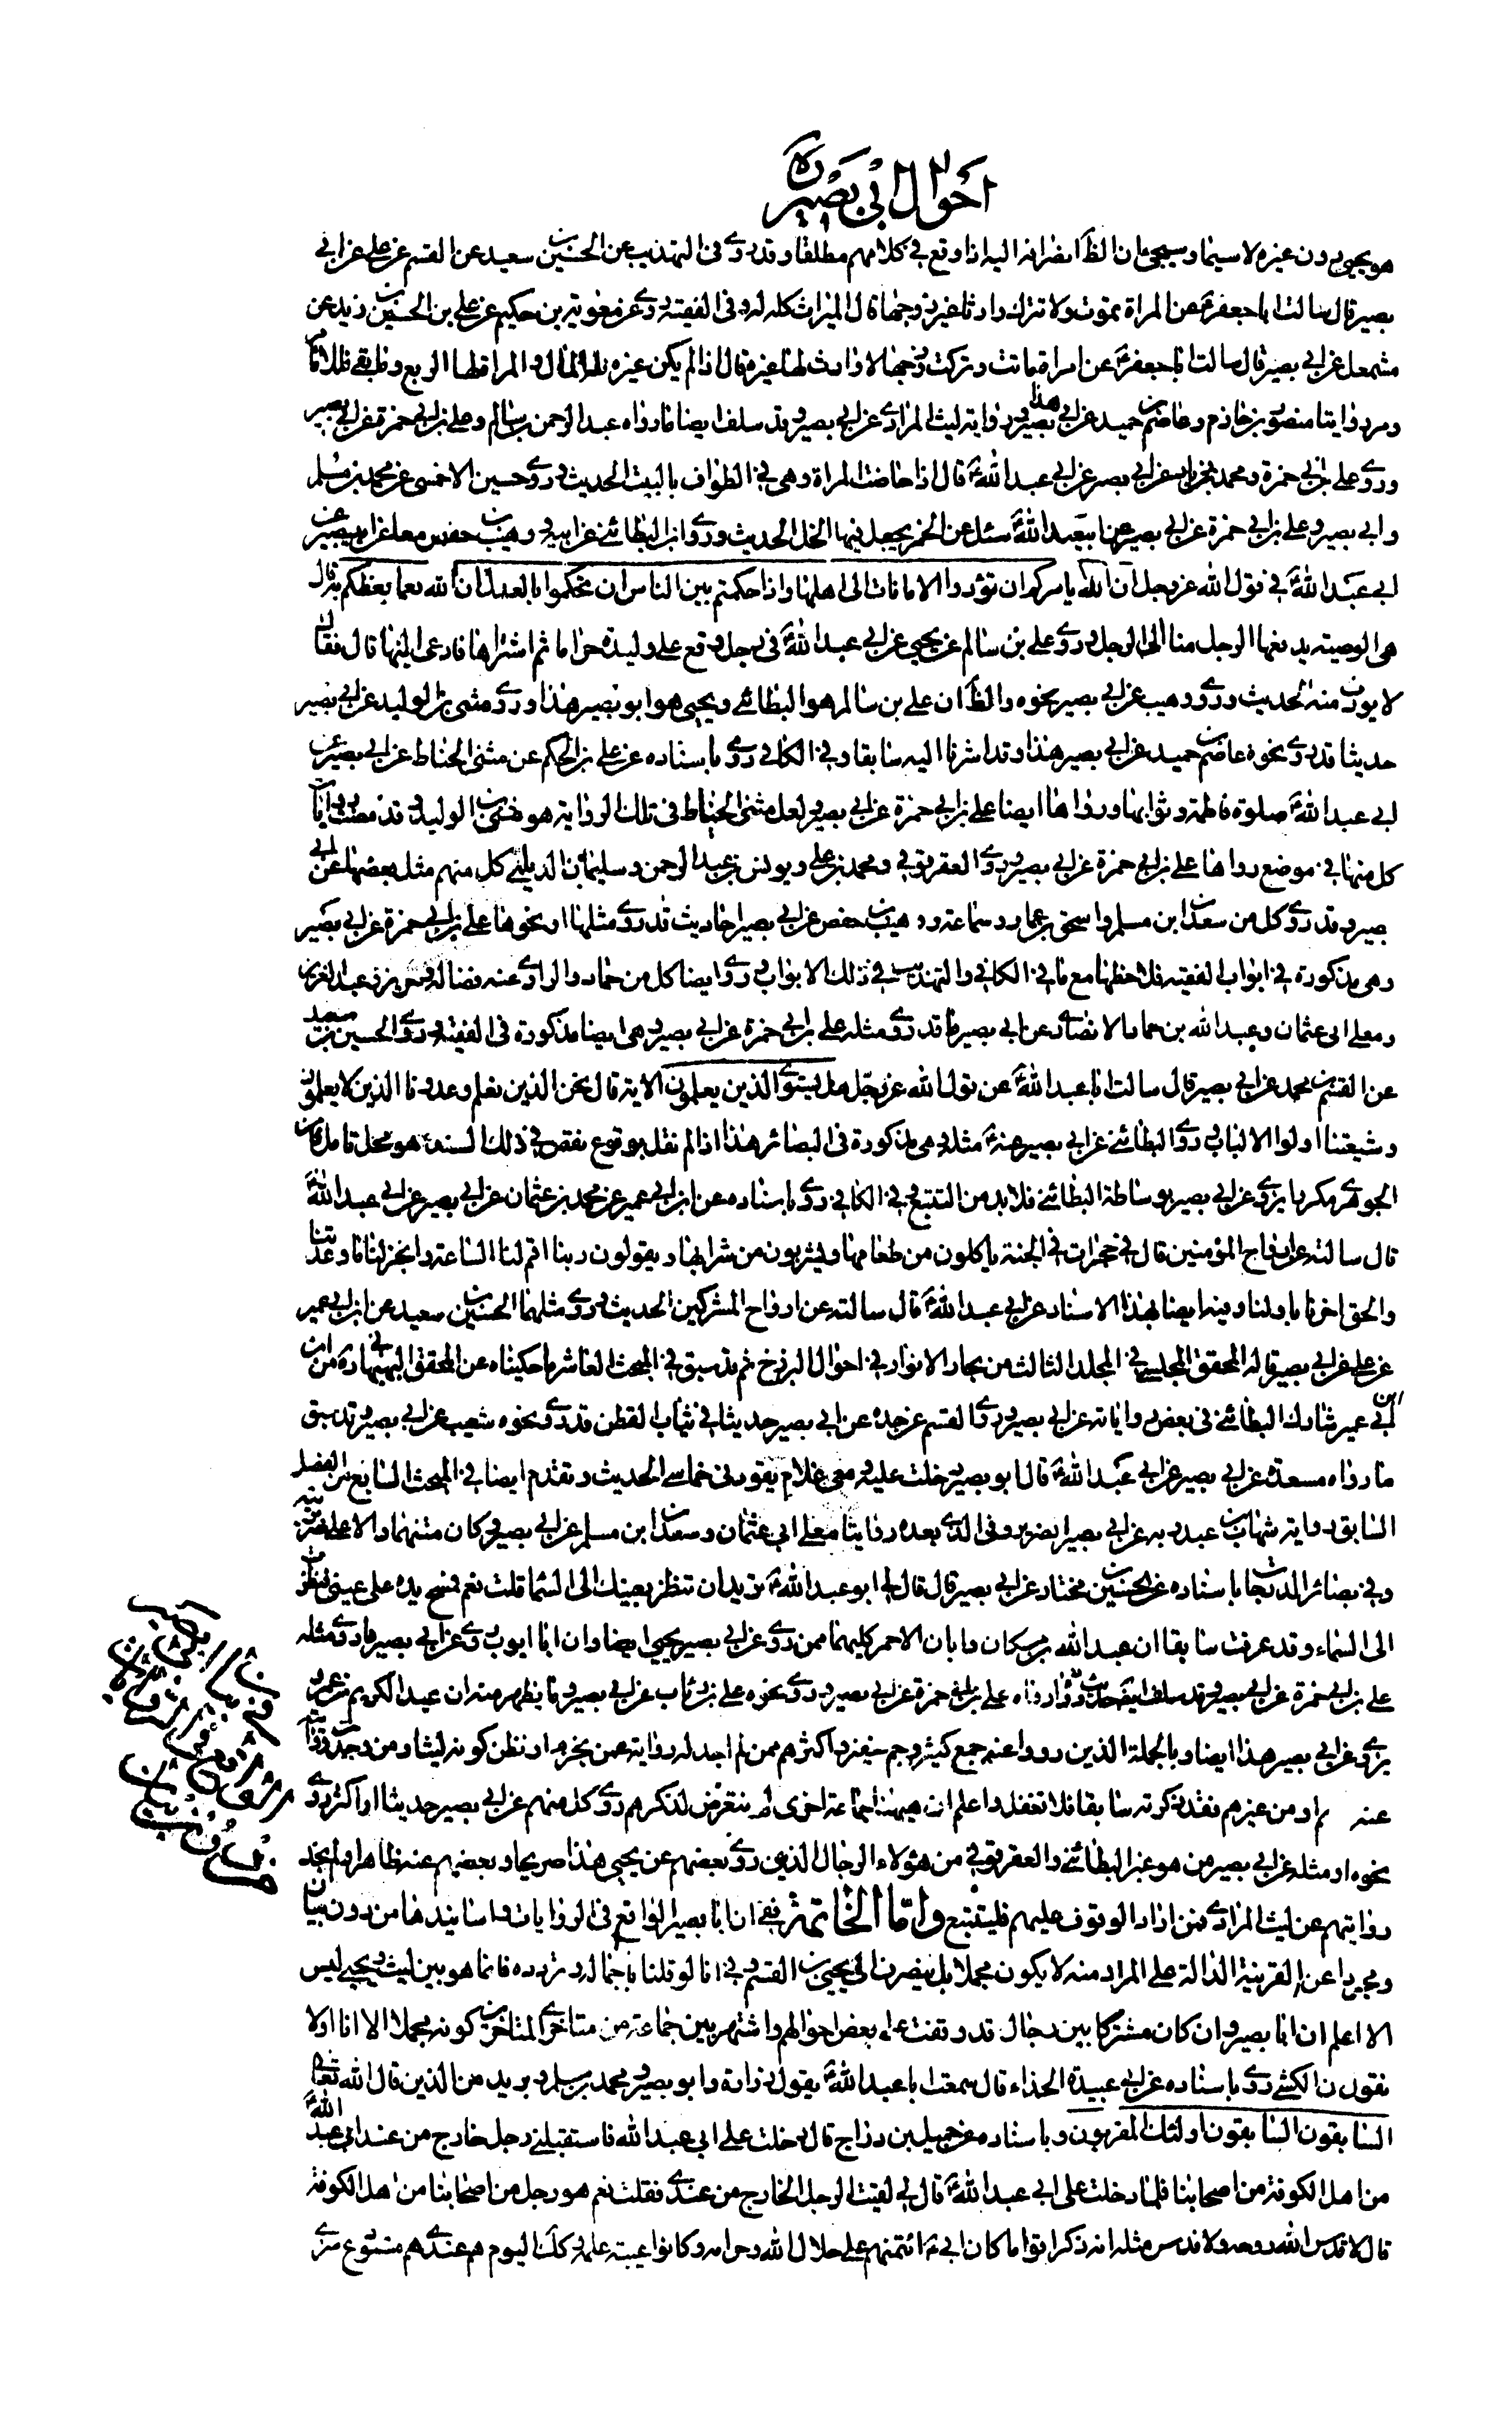 احوال ابي بصير ره
هو يحيى دون غيره لا سيما وسيجئ ان الظ انصرافه اليه اذا وقع في كلامهم مطلقا وقد روى في التهذيب عن الحسين بن سعيد عن القسم عن علي عن ابي
بصير قال سالت ابا جعفر ع عن المراة تموت ولا تترك وارثا غير زوجها قال الميراث كله له وفى الفقيه روى عن معوية بن حكيم عن علي بن الحسن بن زيد عن
مشمعل عن ابي بصير قال سالت ابا جعفر ع عن امراة ماتت وتركت زوجها لا وارث لها غيره قال اذا لم يكن غيره فله المال والمراة لها الربع وما بقى فللامام
ومر روايتا منصور بن حازم وعاصم بن حميد عن ابي بصير هذا ورواية ليث المرادى عن ابي بصير وقد سلف ايضا ما رواه عبد الرحمن بن سالم وعلي بن ابي حمزة عن ابي بصير
وروى علي بن ابي حمزة ومحمد بن عن ابي بصير عن ابي عبد الله ع قال اذا حاضت المراة وهى في الطواف بالبيت الحديث وروى حسين الاحمسى عن محمد بن مسلم
وابي بصير وعلي بن ابي حمزة عن ابي بصير عن ابي عبد الله ع سئل عن الخمر يجعل فيها الخل الحديث وروى ابن البطائنى عن ابيه ووهيب بن حفص معا عن ابي بصير عن
ابي عبد الله ع في قول الله عز وجل ان الله يامركم ان تؤدوا الامانات الى اهلها واذا حكمتم بين الناس ان تحكموا بالعدل ان الله نعما يعظكم به قال
هى الوصية يدفعها الرجل منا الى الرجل وروى علي بن سالم عن يحيى عن ابي عبد الله ع في رجل وقع على وليدة حراما ثم اشتراها فادعى ابنها قال فقال
لا يورث منه الحديث وروى وهيب عن ابي بصير نحوه والظ ان علي بن سالم هو البطائنى ويحيى هو ابو بصير هذا وروى مثنى بن الوليد عن ابي بصير
حديثا قد روى نحوه عاصم بن حميد عن ابي بصير هذا وقد اشرنا اليه سابقا وفى الكافى روى باسناده عن علي بن الحكم عن مثنى الحناط عن ابي بصير عن
ابي عبد الله ع صلوة فاطمة وثوابها ورواها ايضا علي بن ابي حمزة عن ابي بصير ولعل مثنى الحناط في تلك الرواية هو مثنى بن الوليد وقد مضت روايات
كل منها في موضع رواها علي بن ابي حمزة عن ابي بصير وروى العقرقوفي ومحمد بن علي ويونس بن عبد الرحمن وسليمان الديلمى كل منهم مثل بعضها عن ابي
بصير وقد روى كل من سعدان بن مسلم واسحق بن عمار وسماعة ووهيب بن حفص عن ابي بصير احاديث قد روى مثلها او نحوها علي بن ابي حمزة عن ابي بصير
وهى مذكورة في ابواب الفقيه فلاحظها مع ما في الكافي والتهذيب في ذلك الابواب وروى ايضا كل من حماد والراوى عنه فضالة وحسن بن عبد العزيز
ومعلى ابي عثمان وعبد الله بن حماد الانصارى عن ابي بصير ما قد روى مثله علي بن ابي حمزة عن ابي بصير وهى ايضا مذكورة في الفقيه وروى الحسين بن سعيد
عن القسم بن محمد عن ابي بصير قال سالت ابا عبد الله ع عن قول الله عز وجل هل يستوى الذين يعلمون الاية قال نحن الذين نعلم وعدونا الذين لا يعلمون
وشيعتنا اولوا الالباب وروى البطائنى عن ابي بصير عنه ع مثله وهى مذكورة في البصائر هذا اذا لم نقل بوقوع نقص في ذلك السند وهو محل تامل فان
الجوهرى مكررا يروى عن ابي بصير بوساطة البطائنى فلا بد من التتبع وفى الكافي روى باسناده عن ابن ابي عمير عن محمد بن عثمان عن ابي بصير عن ابي عبد الله ع
قال سالته عن ارواح المؤمنين قال في حجرات في الجنة ياكلون من طعامها ويشربون من شرابها ويقولون ربنا اقم لنا الساعة وانجز لنا ما وعدتنا
والحق اخرنا باولنا وفيه ايضا بهذا الاسناد عن ابي عبد الله ع قال سالته عن ارواح المشركين الحديث وروى مثلهما الحسين بن سعيد عن ابن ابي عمير
عن علي عن ابي بصير قاله المحقق المجلسي في المجلد الثالث من بحار الانوار في احوال البرزخ ثم قد سبق في المبحث العاشر ما حكيناه عن المحقق البهبهاني ره من ان
ابن ابي عمير شارك البطائنى في بعض رواياته عن ابي بصير وروى القسم عن جده عن ابي بصير حديثا في ثياب القطن قد روى نحوه شعيب عن ابي بصير وقد سبق
ما رواه مسعدة عن ابي بصير عن ابي عبد الله ع قال ابو بصير دخلت عليه ومعى غلام يقودنى خماسى الحديث وتقدم ايضا في المبحث السابع من الفصل
السابق رواية شهاب بن عبد ربه عن ابي بصير الضرير وفى الذى بعده روايتا معلى ابي عثمان وسعدان بن مسلم عن ابي بصير وكان متنهما دالا على ضريريته
وفى بصائر الدرجات باسناده عن الحسين بن مختار عن ابي بصير قال قال لي ابو عبد الله ع تريد ان تنظر بعينك الى السماء قلت نعم فمسح يده على عينى فنظرت
الى السماء وقد عرفت سابقا ان عبد الله بن مسكان وابان الاحمر كليهما ممن روى عن ابي بصير يحيى ايضا وان ابا ايوب روى عن ابي بصير ما روى مثله
علي بن ابي حمزة عن ابي بصير وقد سلف ايضا حديث رواه علي بن ابي حمزة عن ابي بصير وروى نحوه علي بن رئاب عن ابي بصير وما يظهر منه ان عبد الكريم بن عمرو
يروى عن ابي بصير هذا ايضا وبالجملة الذين رووا عنه جمع كثير وجم غفير واكثرهم ممن لم اجد له رواية عمن نجزم او نظن كونه ليثا ومن وجدت روايته
عنه ره او من غيرهم فقد ذكرته سابقا فلا تغفل واعلم ان ههنا جماعة اخرى لم نتعرض لذكرهم روى كل منهم عن ابي بصير حديثا او اكثر روى
نحوه او مثله عن ابي بصير من هو غير البطائنى والعقرقوفي من هؤلاء الرجال الذين روى بعضهم عن يحيى هذا صريحا وبعضهم عنه ظاهرا ولم نجد
روايتهم عن ليث المرادى فمن اراد الوقوف عليهم فليتتبع واما الخاتمة ففى ان ابا بصير الواقع في الروايات واسانيدها من دون بيان
ومجردا عن القرينة الدالة على المراد منه لا يكون مجملا بل ينصرف الى يحيى بن القسم وفى انا لو قلنا باجماله وتردده فانما هو بين ليث ويحيى ليس
الا اعلم ان ابا بصير وان كان مشتركا بين رجال قد وقفت على بعض احوالهم واشتهر بين جماعة من متاخرى المتاخرين كونه مجملا الا انا اولا
نقول ان الكشى روى باسناده عن ابي عبيدة الحذاء قال سمعت ابا عبد الله ع يقول زرارة وابو بصير ومحمد بن مسلم وبريد من الذين قال الله تعالى
السابقون السابقون اولئك المقربون وباسناده عن جميل بن دراج قال دخلت على ابي عبد الله فاستقبلنى رجل خارج من عند ابي عبد الله ع
من اهل الكوفة من اصحابنا فلما دخلت على ابي عبد الله ع قال لي لقيت الرجل الخارج من عندى فقلت نعم هو رجل من اصحابنا من اهل الكوفة
قال لا قدس الله روحه ولا قدس مثله انه ذكر اقواما كان ابي ع ائتمنهم على حلال الله وحرامه وكانوا عيبة علمه وكذلك اليوم هم عندى هم مستودع سرى